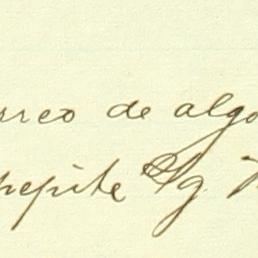 rreo de algo
pepite Sg.